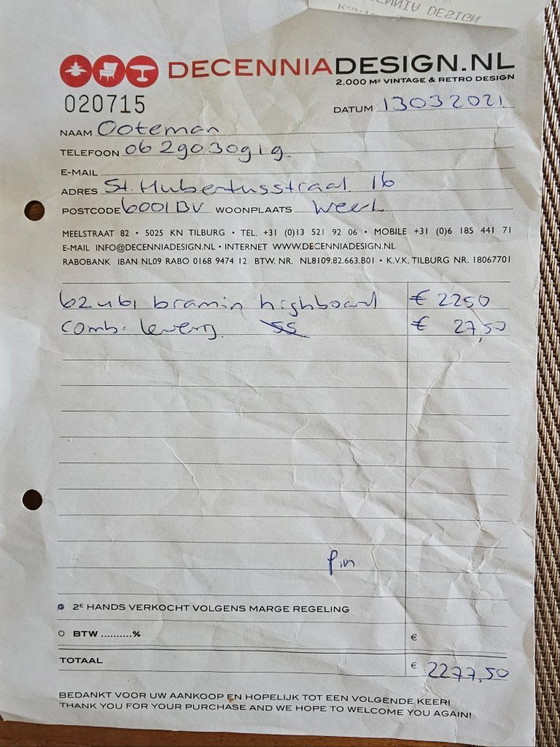 DECENNIADESIGN.NL
2.000 M² VINTAGE & RETRO DESIGN
020715
DATUM 13032021
NAAM Ooteman
TELEFOON 0629030919
E-MAIL
ADRES St. Hubertusstraat 16
POSTCODE 6001BV WOONPLAATS Weert
MEELSTRAAT 82 • 5025 KN TILBURG • TEL. +31 (0)13 521 92 06 • MOBILE +31 (0)6 185 441 71
E-MAIL INFO@DECENNIADESIGN.NL • INTERNET WWW.DECENNIADESIGN.NL
RABOBANK IBAN NL09 RABO 0168 9474 12 BTW. NR. NL8109.82.663.B01 • K.V.K. TILBURG NR. 18067701
bramin highboard € 2250
comb. levering € 27,50
Pin
2E HANDS VERKOCHT VOLGENS MARGE REGELING
BTW ..........% €
TOTAAL € 2277,50
BEDANKT VOOR UW AANKOOP EN HOPELIJK TOT EEN VOLGENDE KEER!
THANK YOU FOR YOUR PURCHASE AND WE HOPE TO WELCOME YOU AGAIN!